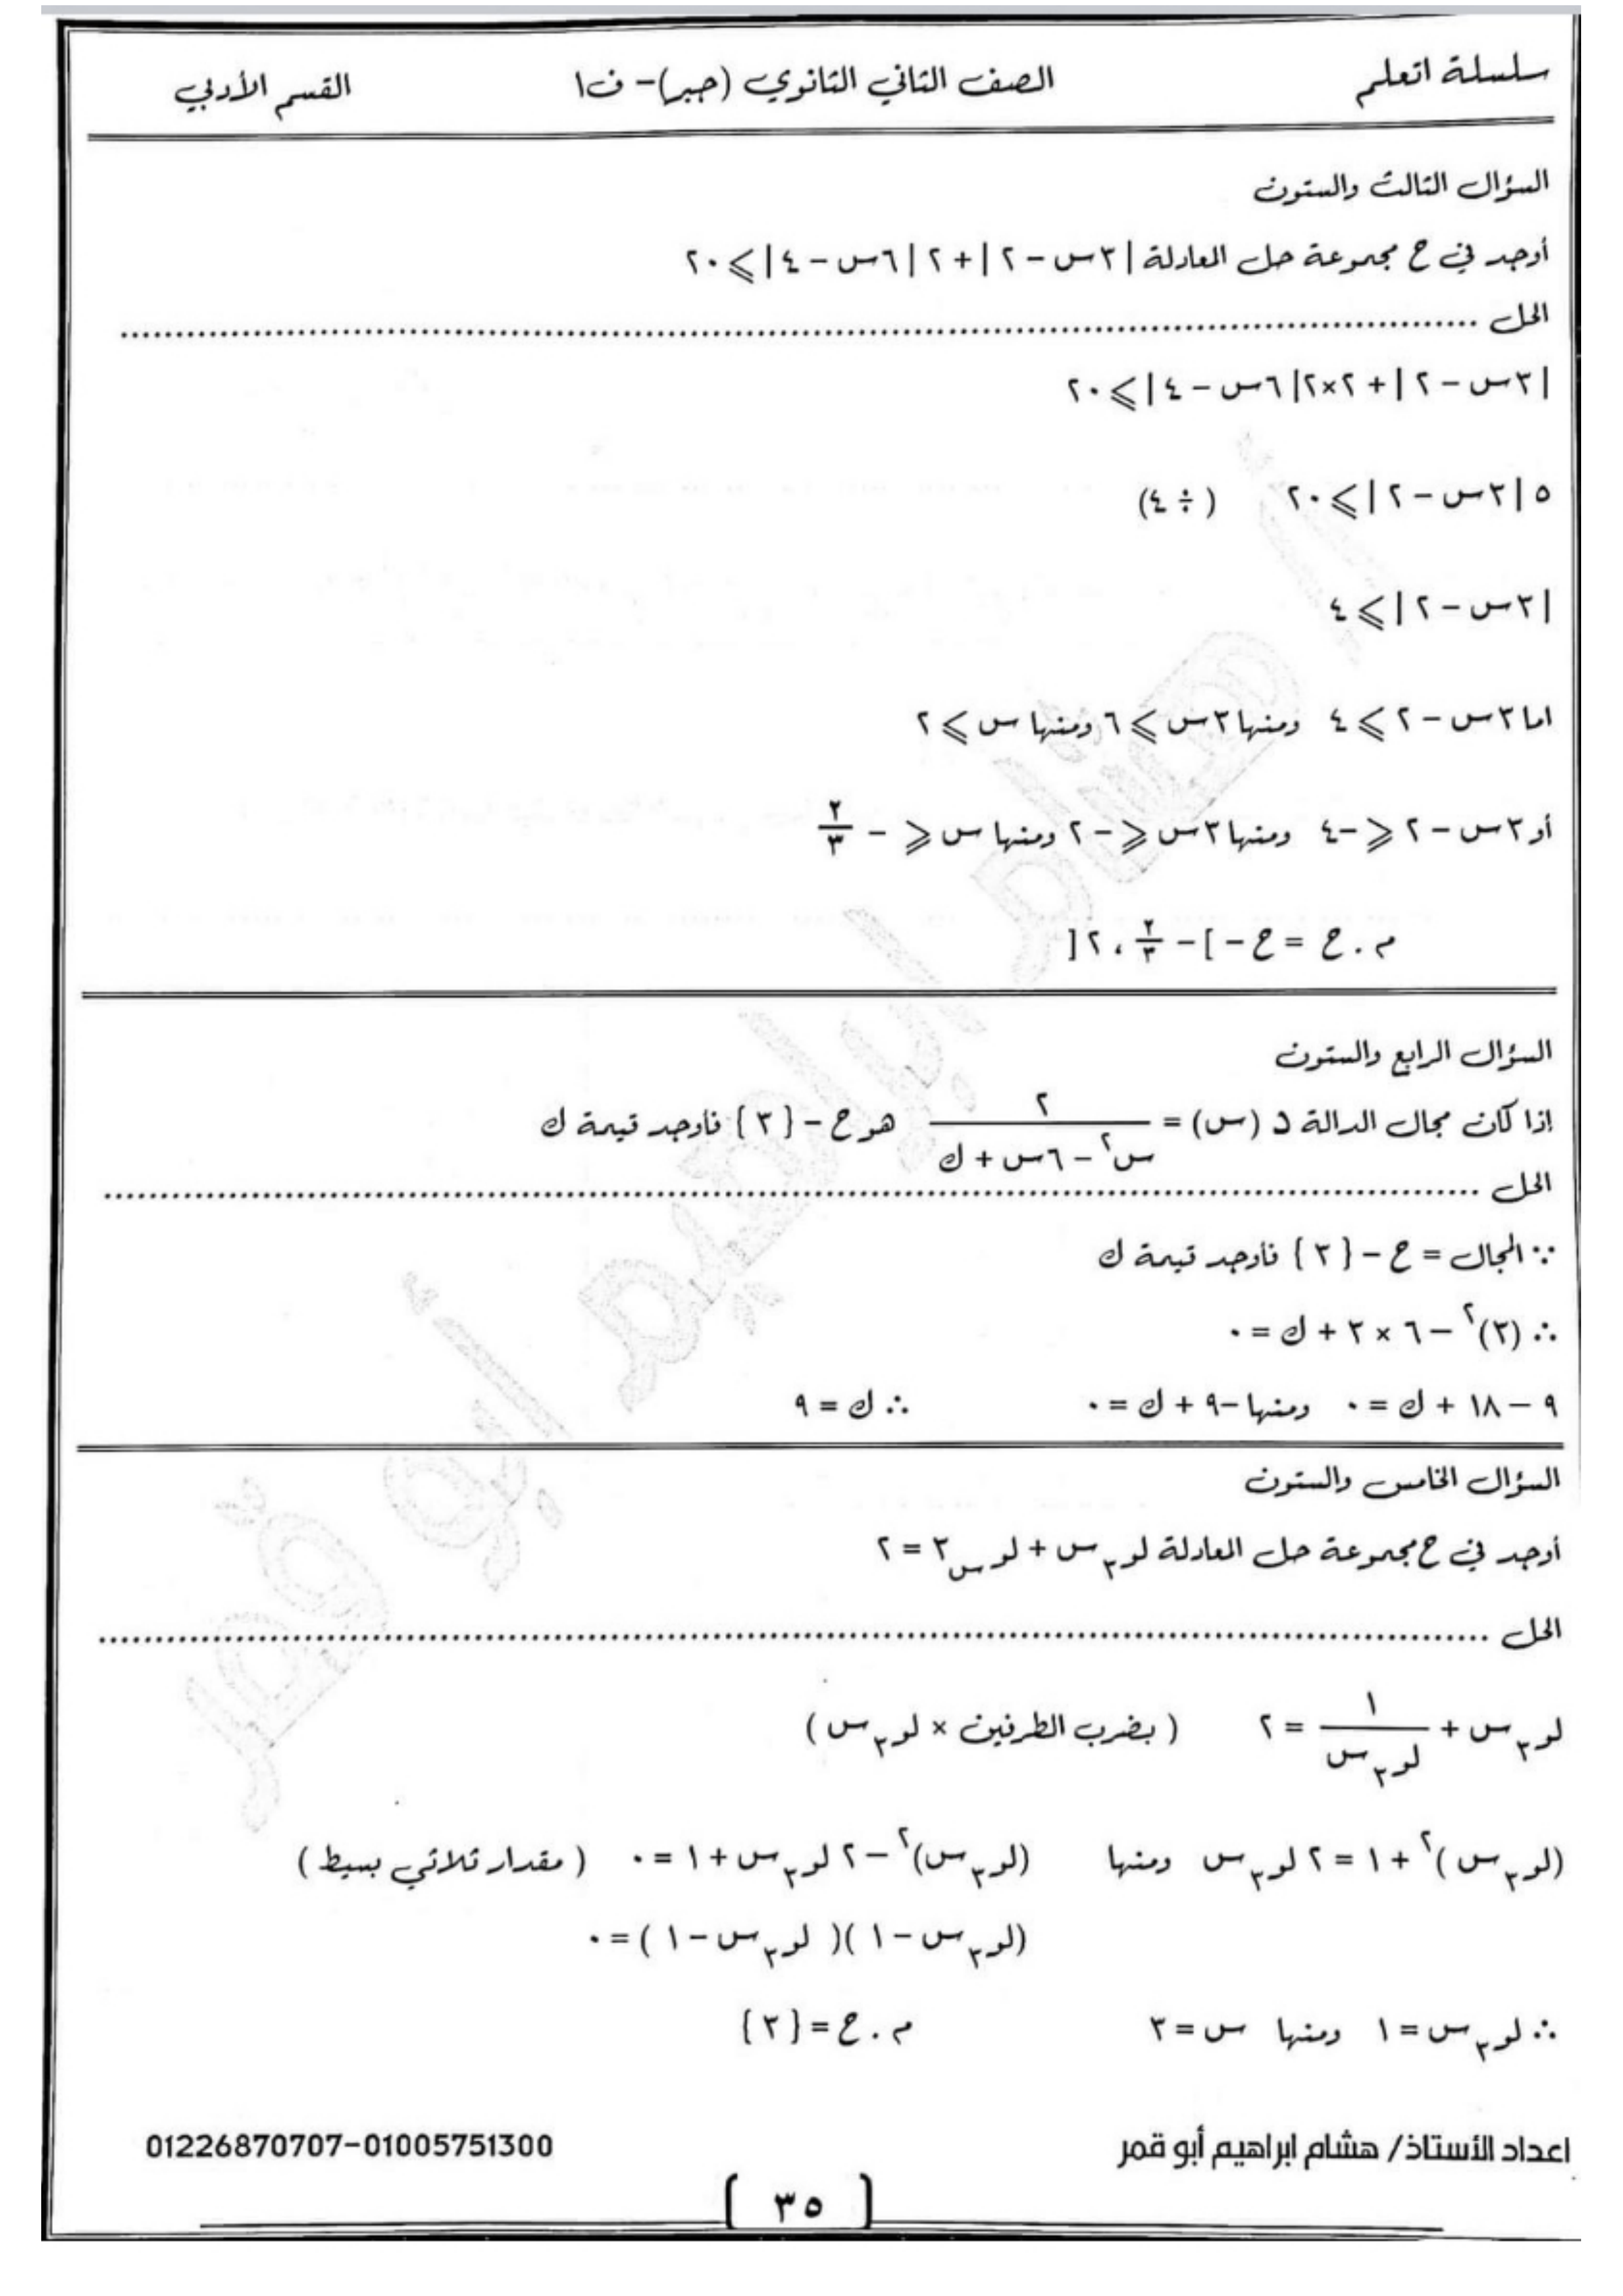 سلسلة اتعلم الصف الثاني الثانوي (جبر)- ف١ القسم الأدبي
السؤال الثالث والستون
أوجد في ح مجموعة حل المعادلة | ٣س - ٢ | + ٢ | ٦س - ٤ | ⩾ ٢٠
الحل ................................................................
| ٣س - ٢ | + ٢×٢| ٦س - ٤ | ⩾ ٢٠
٥ | ٣س - ٢ | ⩾ ٢٠ ( ÷ ٤)
| ٣س - ٢ | ⩾ ٤
اما ٣س - ٢ ⩾ ٤ ومنها ٣س ⩾ ٦ ومنها س ⩾ ٢
أو ٣س - ٢ ⩽ -٤ ومنها ٣س ⩽ - ٢ ومنها س ⩽ - ٢/٣
م . ح = ح - ] - ٢/٣ ، ٢ [
السؤال الرابع والستون
إذا كان مجال الدالة د (س) = ٢ / (س² - ٦س + ك) هو ح - { ٣ } فأوجد قيمة ك
الحل ................................................................
∵ المجال = ح - { ٣ } فأوجد قيمة ك
∴ (٣)² - ٦ × ٣ + ك = ٠
٩ - ١٨ + ك = ٠ ومنها -٩ + ك = ٠ ∴ ك = ٩
السؤال الخامس والستون
أوجد في ح مجموعة حل المعادلة لو٣ س + لوس ٣ = ٢
الحل ................................................................
لو٣ س + ١ / لو٣ س = ٢ ( بضرب الطرفين × لو٣ س )
(لو٣ س )² + ١ = ٢ لو٣ س ومنها (لو٣ س)² - ٢ لو٣ س + ١ = ٠ ( مقدار ثلاثي بسيط )
(لو٣ س - ١ )( لو٣ س - ١ ) = ٠
∴ لو٣ س = ١ ومنها س = ٣ م . ح = { ٣ }
اعداد الأستاذ/ هشام ابراهيم أبو قمر 01226870707-01005751300
[ ٣٥ ]
هشام إبراهيم أبو قمر